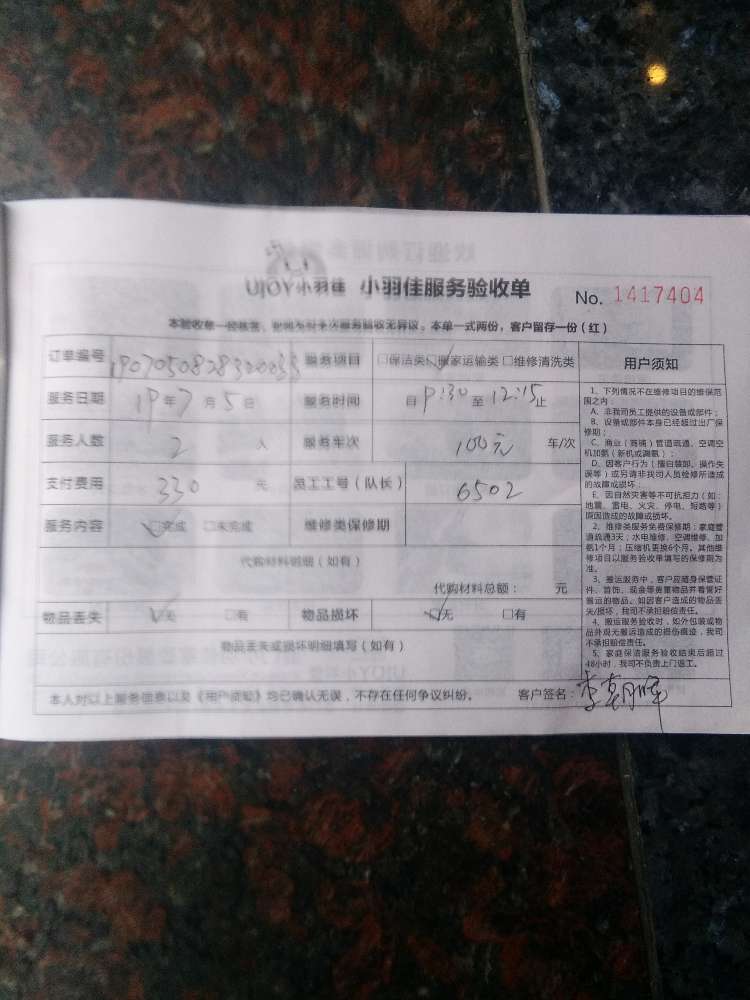 UJOY小羽佳 小羽佳服务验收单 No. 1417404
本验收单一经签名，本单一式两份，客户留存一份（红）
订单编号 服务项目 □保洁类 ☑搬家运输类 □维修清洗类 用户须知
服务日期 19年7月5日 服务时间 自 9:30 至 12:15 止
服务人数 2 人 服务车次 100元 车/次
支付费用 330 元 员工工号（队长） 6502
服务内容 ☑完成 □未完成 维修类保修期
代购材料明细（如有）
代购材料总额： 元
物品丢失 ☑无 □有 物品损坏 ☑无 □有
物品丢失或损坏明细填写（如有）
本人对以上服务信息以及《用户须知》均已确认无误，不存在任何争议纠纷。 客户签名：李朝晖
1、下列情况不在维修项目的维保范
围之内：
A、非我司员工提供的设备或部件；
B、设备或部件本身已经超过出厂保
修期；
C、商业（商铺）管道疏通、空调空
机加氨（新机或漏氨）；
D、因客户行为（擅自装卸、操作失
误等）或另请非我司人员检修所造成
的故障或损坏；
E、因自然灾害等不可抗拒力（如：
地震、雷电、火灾、停电、短路等）
原因造成的故障或损坏。
2、维修类服务免费保修期：家庭管
道疏通3天；水电维修、空调维修、加
氨1个月；压缩机更换6个月。其他维
修项目以服务验收单填写的保修期为
准。
3、搬运服务中，客户应随身保管证
件、首饰、现金等贵重物品并看管好
搬运的物品。如因客户造成的物品丢
失/损坏，我司不承担赔偿责任。
4、搬运服务验收时，如外包装或物
品外观无搬运造成的损伤痕迹，我司
不承担赔偿责任。
5、家庭保洁服务验收结束后超过
48小时，我司不负责上门返工。